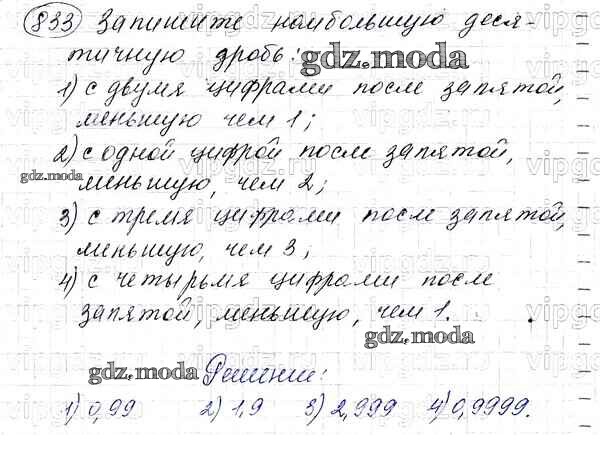 833 Запишите наибольшую деся-
тичную дробь:
gdz.moda
1) с двумя цифрами после запятой,
меньшую чем 1;
2) с одной цифрой после запятой,
gdz.moda
меньшую, чем 2;
3) с тремя цифрами после запятой,
меньшую, чем 3;
4) с четырьмя цифрами после
запятой, меньшую, чем 1.
gdz.moda
gdz.moda
Решение:
1) 0,99 2) 1,9 3) 2,999 4) 0,9999.